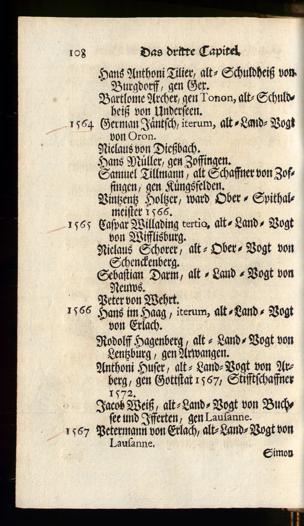 108 Das dritte Capitel.
Hans Anthoni Tilier, alt-Schuldheiß von
Burgdorff, gen Ger.
Bartlome Archer, gen Tonon, alt-Schuld-
heiß von Underseen.
1564 German Jäntsch, iterum, alt-Land-Vogt
von Oron.
Niclaus von Dießbach.
Hans Müller, gen Zoffingen.
Samuel Tillmann, alt Schaffner von Zof-
fingen, gen Küngsfelden.
Vintzentz Holtzer, ward Ober-Spithal-
meister 1566.
1565 Caspar Willading tertio, alt-Land-Vogt
von Wifflisburg.
Niclaus Schorer, alt-Ober-Vogt von
Schenckenberg.
Sebastian Darm, alt-Land-Vogt von
Neuws.
Peter von Wehrt.
1566 Hans im Haag, iterum, alt-Land-Vogt
von Erlach.
Rodolff Hagenberg, alt-Land-Vogt von
Lentzburg, gen Arwangen.
Anthoni Huser, alt-Land-Vogt von Ar-
berg, gen Gottstat 1567, Stifftschaffner
1572.
Jacob Weiß, alt-Land-Vogt von Buch-
see und Ifferten, gen Lausanne.
1567 Petermann von Erlach, alt-Land-Vogt von
Lausanne.
Simon